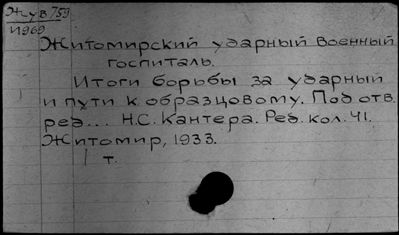 Жув 759
И969
Житомирский ударный военный
госпиталь.
Итоги борьбы за ударный
и пути к образцовому. Под отв.
ред... Н.С. Кантера. Ред. кол. Ч1.
Житомир, 1933.
1 т.